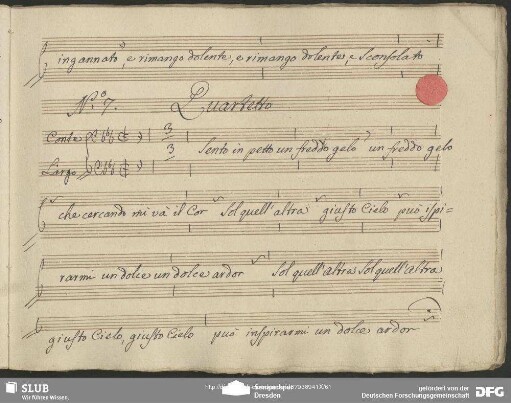 ingannato, e rimango dolente, e rimango dolente, e sconsolato
No. 7. Quartetto
Conte 3 3 Sento in petto un freddo gelo un freddo gelo
Largo
che cercando mi và il Cor Sol quell'altra giusto Cielo può ispi=
rarmi un dolce un dolce ardor Sol quell'altra Sol quell'altra
giusto Cielo, giusto Cielo può inspirarmi un dolce ardor
SLUB
Wir führen Wissen.
Dresden
gefördert von der
Deutschen Forschungsgemeinschaft
DFG